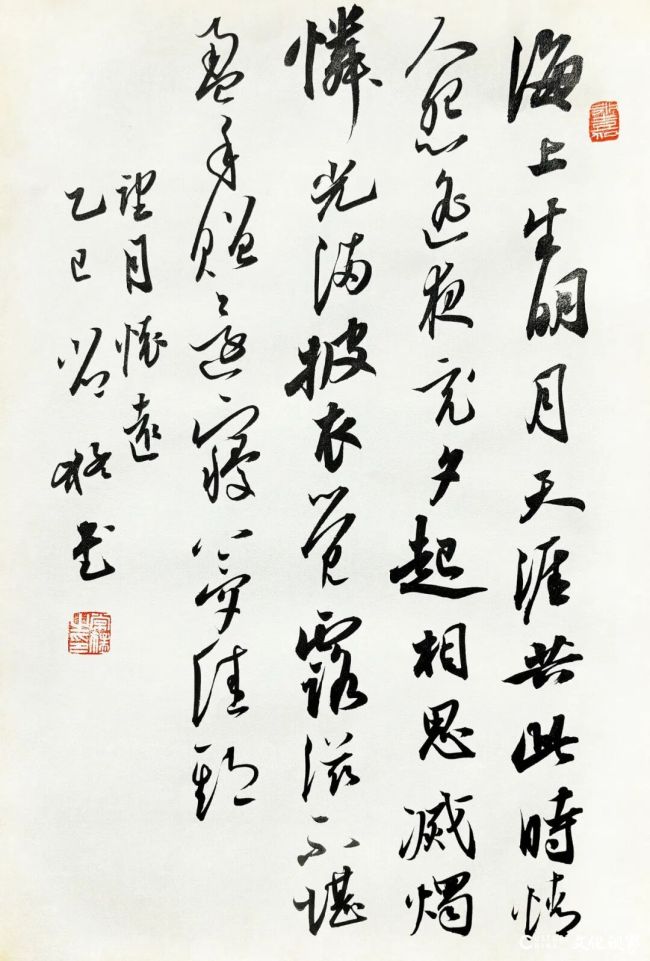 海上生明月天涯共此時情
人怨遥夜竟夕起相思滅燭
憐光滿披衣覺露滋不堪
盈手贈還寢夢佳期
望月懷遠
乙巳 書
文化视界